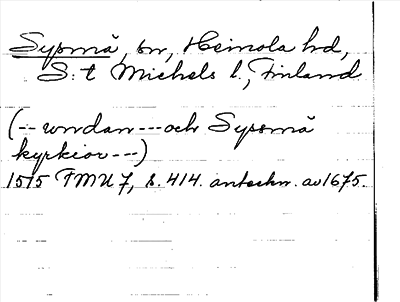 Sysmä, sn, Heinola hd,
S:t Michels l., Finland
(-- undan --- och Syssmä
kyrkior ---)
1515 FMU 7, s. 414. anteckn. av 1675.